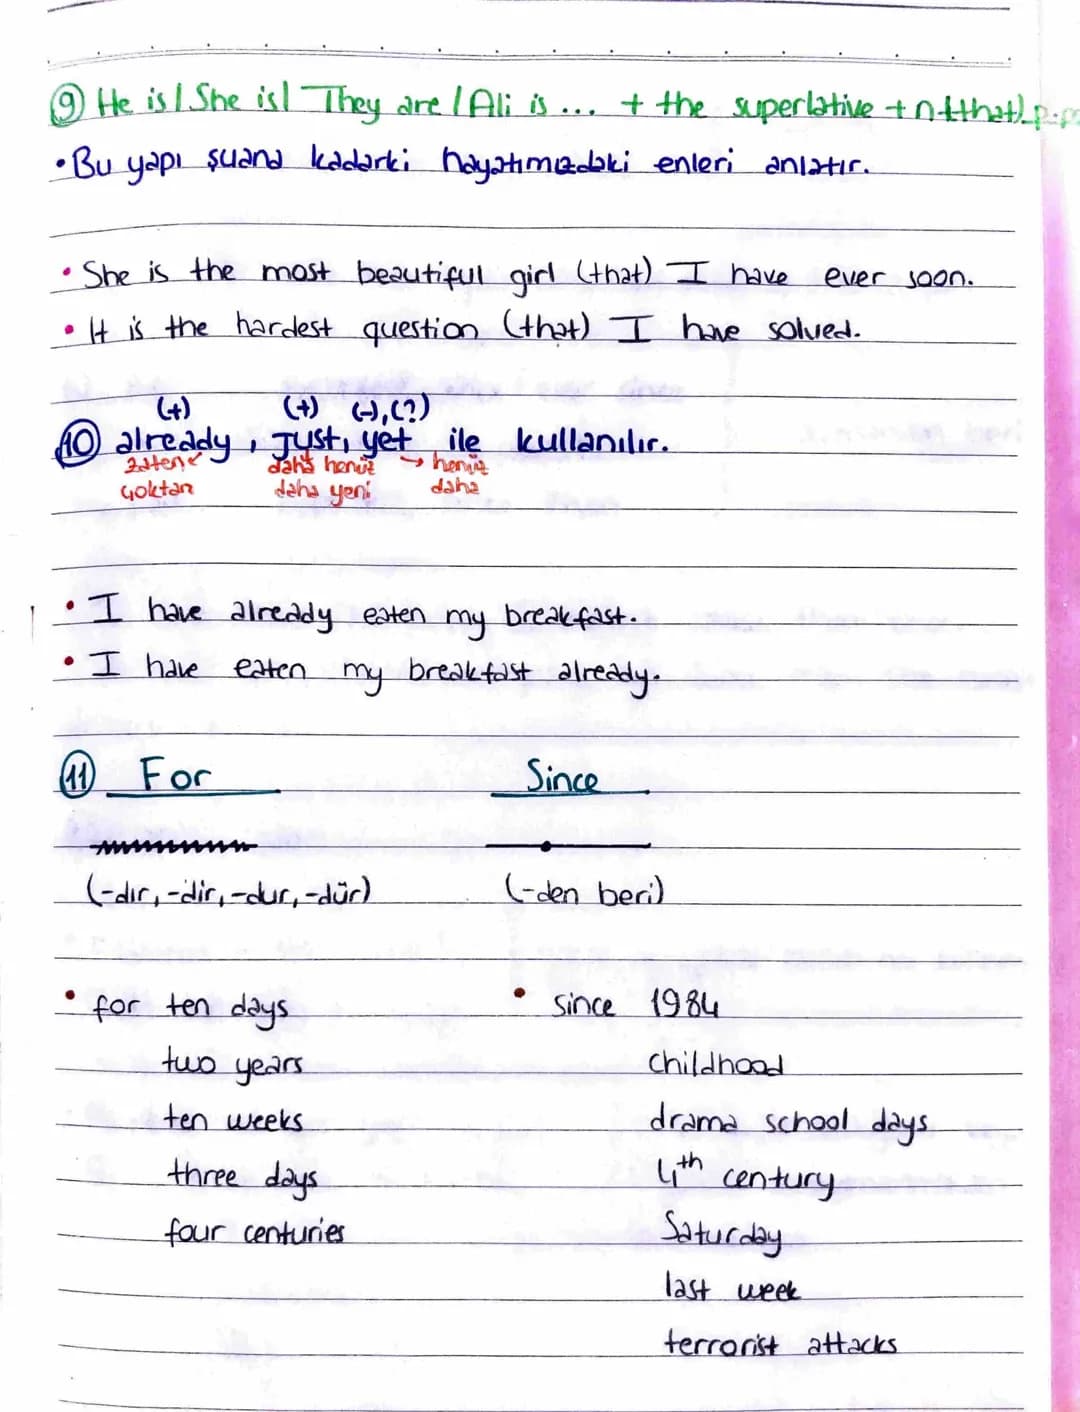 9 He is / She is / They are / Ali is ... + the superlative + n + (that) p.p
• Bu yapı şuana kadarki hayatımızdaki enleri anlatır.
• She is the most beautiful girl (that) I have ever soon.
• It is the hardest question (that) I have solved.
(+) (+) (-), (?)
10 already, Just, yet ile kullanılır.
zaten daha henüz → henüz
çoktan daha yeni daha
• I have already eaten my breakfast.
• I have eaten my breakfast already.
11 For Since
(-dır, -dir, -dur, -dür) (-den beri)
• for ten days • since 1984
two years childhood
ten weeks drama school days
three days 4th century
four centuries Saturday
last week
terrorist attacks